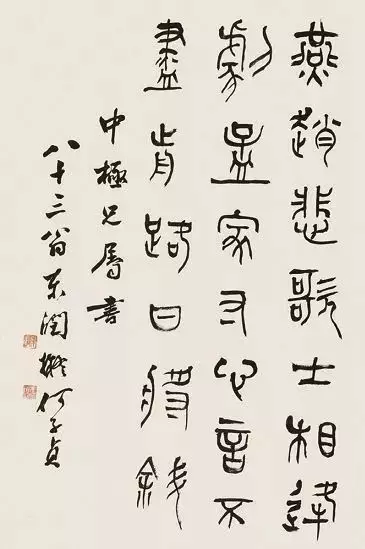 燕趙悲歌士相逢
劇孟家寸心言不
盡前路日將斜
中極兄屬書
八十三翁東潤擬何子貞